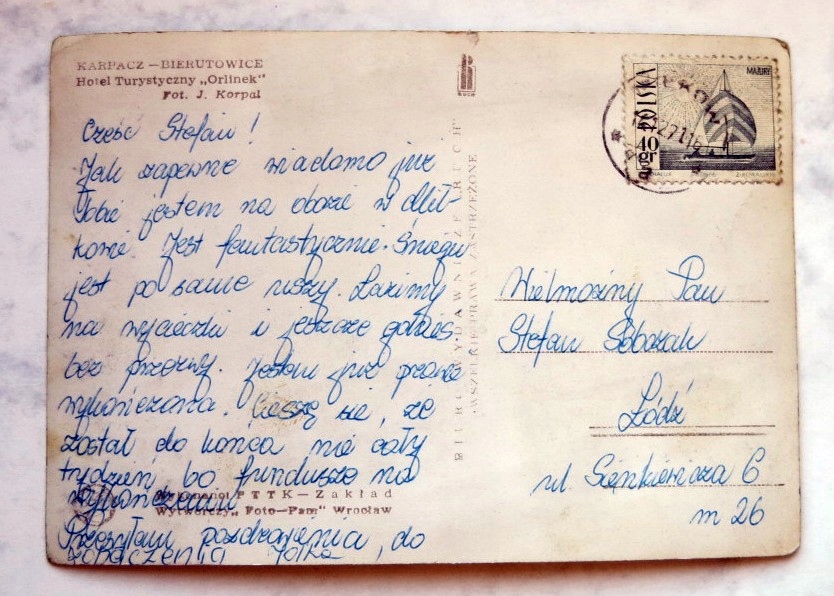 KARPACZ — BIERUTOWICE
Hotel Turystyczny „Orlinek"
Fot. J. Korpal
Cześć Stefan!
Jak zapewne wiadomo już
Tobie jestem na obozie w Mił-
kowie. Jest fantastycznie. Śniegu
jest po same uszy. Łazimy
na wycieczki i jeszcze gdzieś
bez przerwy. Jestem już prawie
wykończona. Cieszę się, że
został do końca nie cały
tydzień bo fundusze na
wykończeniu
Przesyłam pozdrowienia, do
zobaczenia Jolka
PTTK — Zakład
Wytwórczy „Foto—Pam" Wrocław
BIURO WYDAWNICZE „RUCH"
WSZELKIE PRAWA ZASTRZEŻONE
RUCH
POLSKA
40 gr
MAZURY
Wielmożny Pan
Stefan Sobczak
Łódź
ul. Sienkiewicza 6
m 26